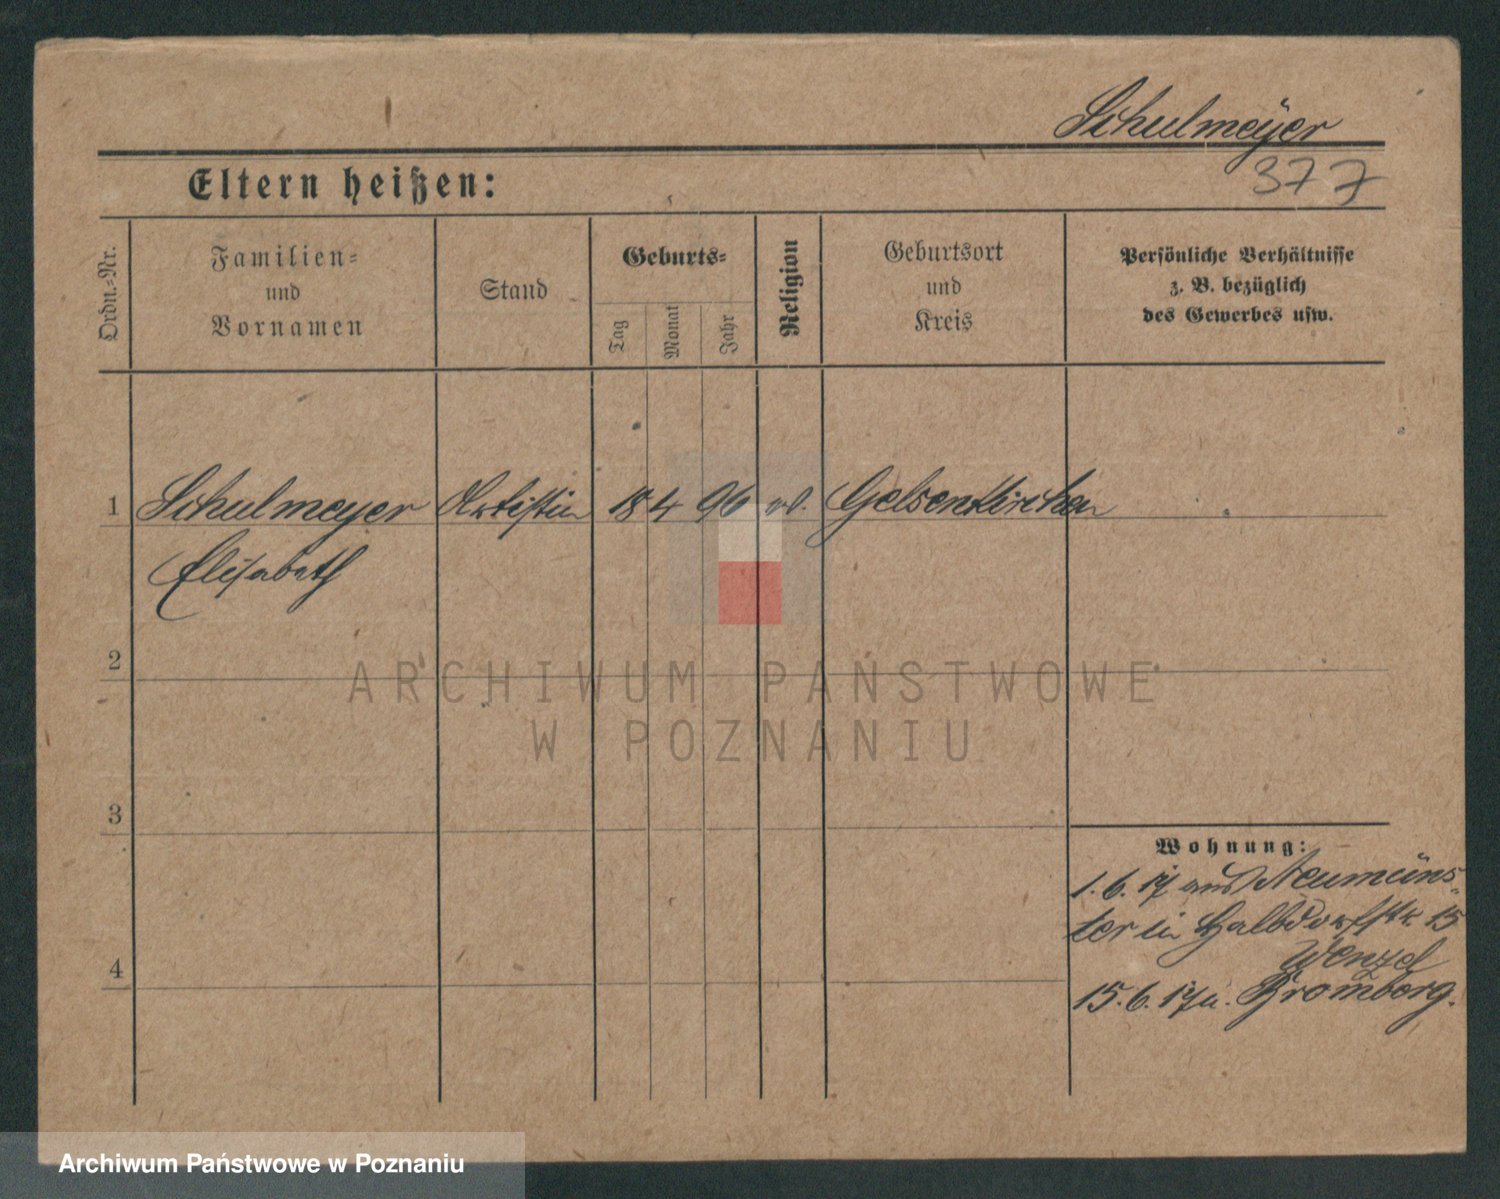 Schulmeÿer
Eltern heißen:
377
Ordn.-Nr.
Familien-
und
Vornamen
Stand
Geburts-
Tag
Monat
Jahr
Religion
Geburtsort
und
Kreis
Persönliche Verhältnisse
z. B. bezüglich
des Gewerbes usw.
1 Schulmeyer Artistin 18 4 96 Gelsenkirchen
Elisabeth
2
3
4
Wohnung:
1.6.17 aus Neumüns-
ter in Halbdorfstr. 15
Wenzel
15.6.17 n. Bromberg.
ARCHIWUM PAŃSTWOWE
W POZNANIU
Archiwum Państwowe w Poznaniu